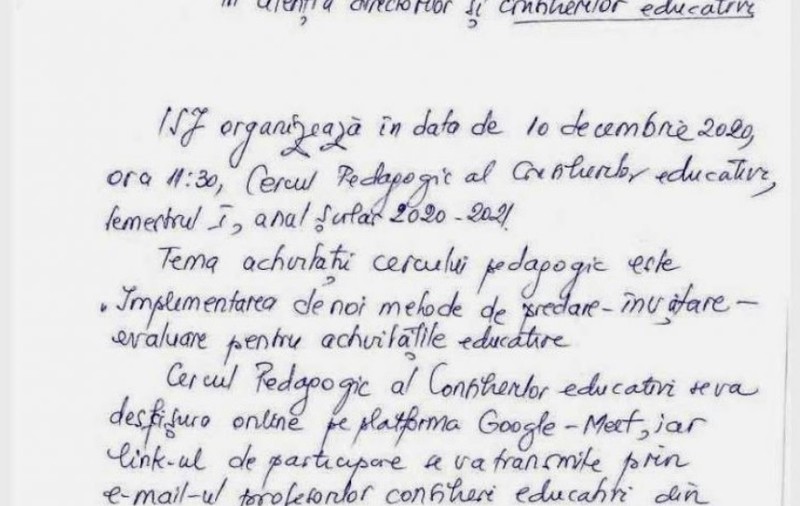 în atenția directorilor și consilierilor educativi
ISJ organizează în data de 10 decembrie 2020,
ora 11:30, Cercul Pedagogic al Consilierilor educativi,
semestrul I, anul școlar 2020-2021.
Tema activității cercului pedagogic este
„Implementarea de noi metode de predare-învățare-
evaluare pentru activitățile educative
Cercul Pedagogic al Consilierilor educativi se va
desfășura online pe platforma Google-Meet, iar
link-ul de participare se va transmite prin
e-mail-ul profesorilor consilieri educativi din